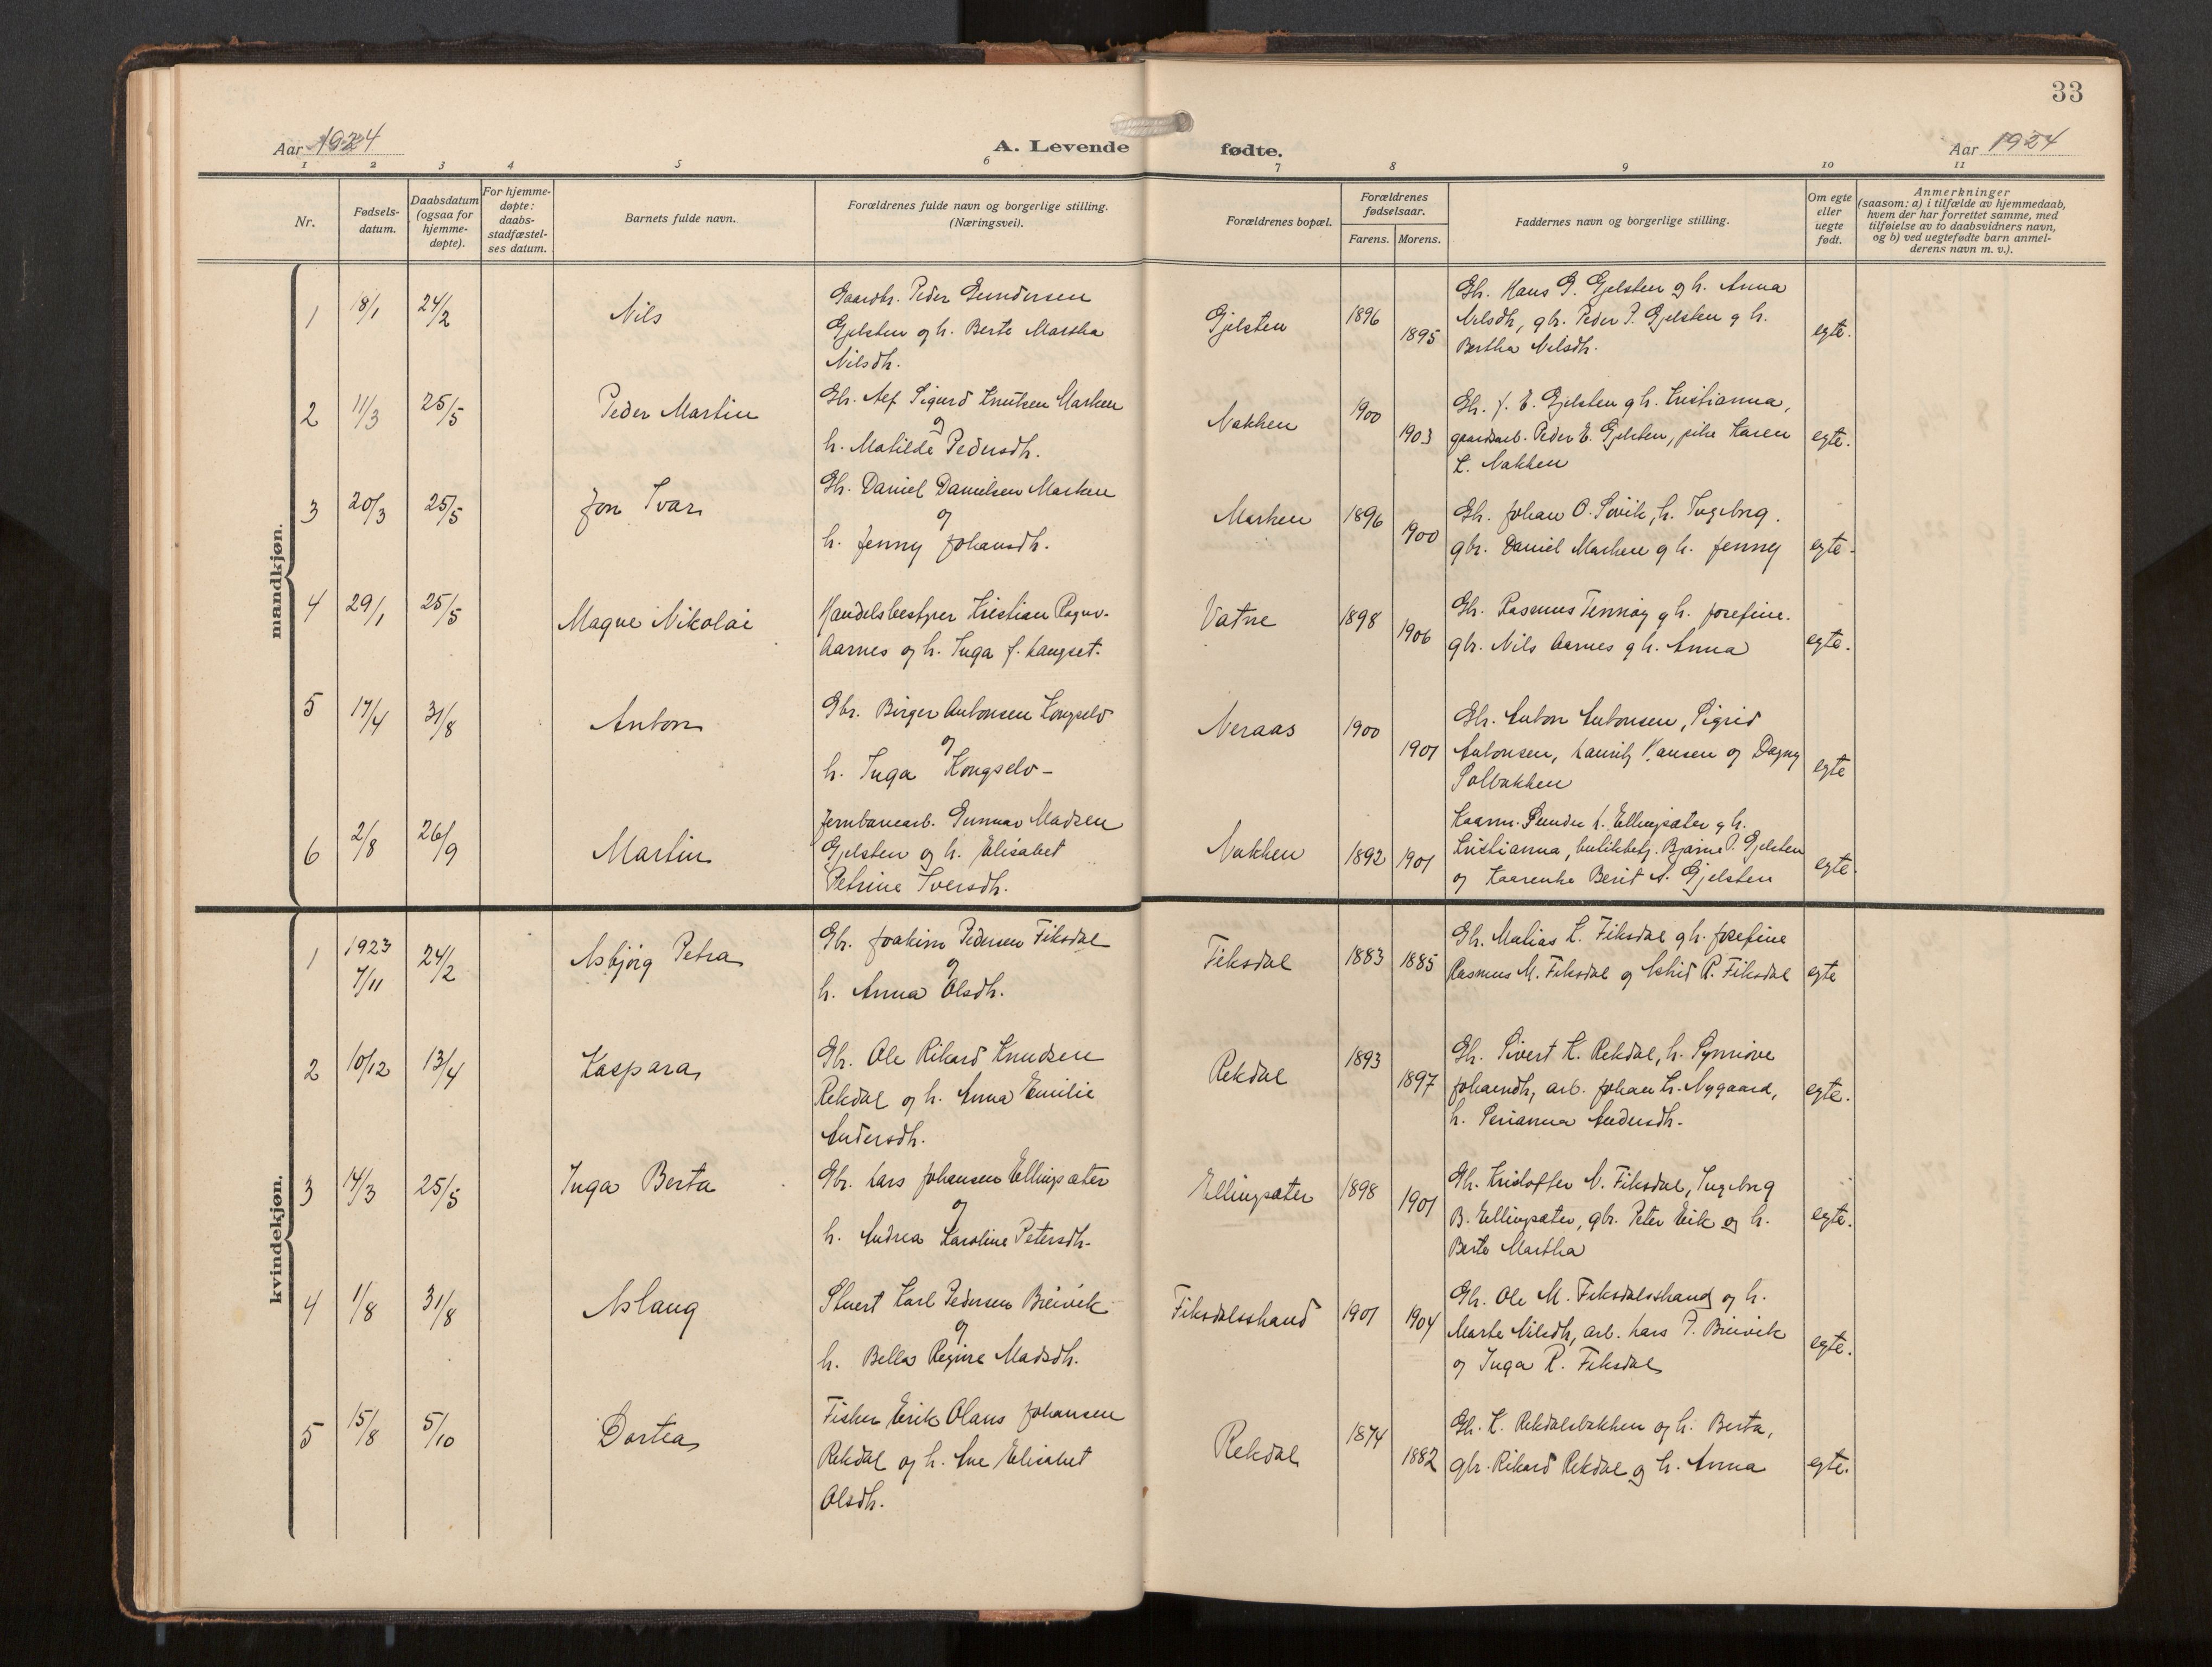 33
Aar 1924
A. Levende fødte.
Aar 1924
1 2 3 4 5 6 7 8 9 10 11
Nr.
Fødsels-
datum.
Daabsdatum
(ogsaa for
hjemme-
døpte).
For hjemme-
døpte:
daabs-
stadfæstel-
ses datum.
Barnets fulde navn.
Forældrenes fulde navn og borgerlige stilling.
(Næringsvei).
Forældrenes bopæl.
Forældrenes
fødselsaar.
Farens. Morens.
Faddernes navn og borgerlige stilling.
Om egte
eller
uegte
født.
Anmerkninger
(saasom: a) i tilfælde av hjemmedaab,
hvem der har forrettet samme, med
tilføielse av to daabsvidners navn,
og b) ved uegtefødte barn anmel-
derens navn m. v.).
mandkjøn.
1 18/1 24/2 Nils
Gaardbr. Peder Gundersen
Gjelsten og h. Berte Martha
Nilsdh.
Gjelsten 1896 1895
Gbr. Hans G. Gjelsten og h. Anna
Nilsdh, gbr. Peder P. Gjelsten g h.
Bertha Nilsdh.
egte.
2 11/3 25/5 Peder Martin
Gbr. Alf Sigurd Knutsen Marken
og
h. Matilde Pedersdh.
Nakken 1900 1903
Gbr. J. E. Gjelsten g h. Kristianna,
gaardsarb. Peder E. Gjelsten, pike Karen
L. Nakken
egte.
3 20/3 25/5 Jon Ivar
Gbr. Daniel Danielsen Marken
og
h. Jenny Johansdh.
Marken 1896 1900
Gbr. Johan O. Søvik, h. Ingeborg.
gbr. Daniel Marken g h. Jenny
egte.
4 29/1 25/5 Magne Nikolai
Handelsbestyrer Kristian Ragnv.
Aarnes og h. Inga f. Langset.
Vatne 1898 1906
Gbr. Rasmus Tennøy g h. Josefine.
gbr. Nils Aarnes g h. Anna
egte.
5 17/4 31/8 Anton
Gbr. Birger Antonsen Kongselv
og
h. Inga Kongselv-
Neraas 1900 1901
Gbr. Anton Antonsen, Sigrid
Antonsen, Lauritz Hansen og Dagny
Solbakken
egte
6 2/8 26/9 Martin
Jernbanearb. Gunnar Madsen
Gjelsten og h. Elisabet
Petrine Iversdh.
Nakken 1892 1901
Kaarm. L. Ellingsæter g h.
Kristianna, butikbetj. Bjarne P. Gjelsten
og Kaarenke Berit A. Gjelsten
egte.
kvindekjøn.
1 1923 7/11 24/2 Asbjørg Petra
Gbr. Joakim Pedersen Fiksdal
og
h. Anna Olsdh.
Fiksdal 1883 1885
Gbr. Matias L. Fiksdal g h. Josefine
Rasmus M. Fiksdal og Astrid R. Fiksdal
egte
2 10/12 13/4 Kaspara
Gbr. Ole Rikard Knudsen
Rekdal og h. Anna Emilie
Andersdh.
Rekdal 1893 1897
Gbr. Sivert K. Rekdal, h. Synnøve
Johansdh, arb. Johan L. Nygaard,
h. Serianna Andersdh.
egte.
3 14/3 25/5 Inga Berta
Gbr. Lars Johansen Ellingsæter
og
h. Andrea Karoline Petersdh.
Ellingsæter 1898 1901
Gbr. Kristoffer N. Fiksdal, Ingeborg
B. Ellingsæter, gbr. Peter Eik og h.
Berte Martha
egte.
4 1/8 31/8 Aslaug
Stuert Karl Pedersen Breivik
og
h. Bella Regine Madsdh.
Fiksdalsstrand 1901 1904
Gbr. Ole M. Fiksdalsstrand og h.
Marte Nilsdh, arb. Lars P. Breivik
og Inga R. Fiksdal
egte.
5 15/8 5/10 Dortea
Fisker Erik Olaus Johansen
Rekdal og h. Ane Elisabet
Olsdh.
Rekdal 1874 1882
Gbr. K. Rekdalsbakken og h. Berta,
gbr. Rikard Rekdal og h. Anna
egte.